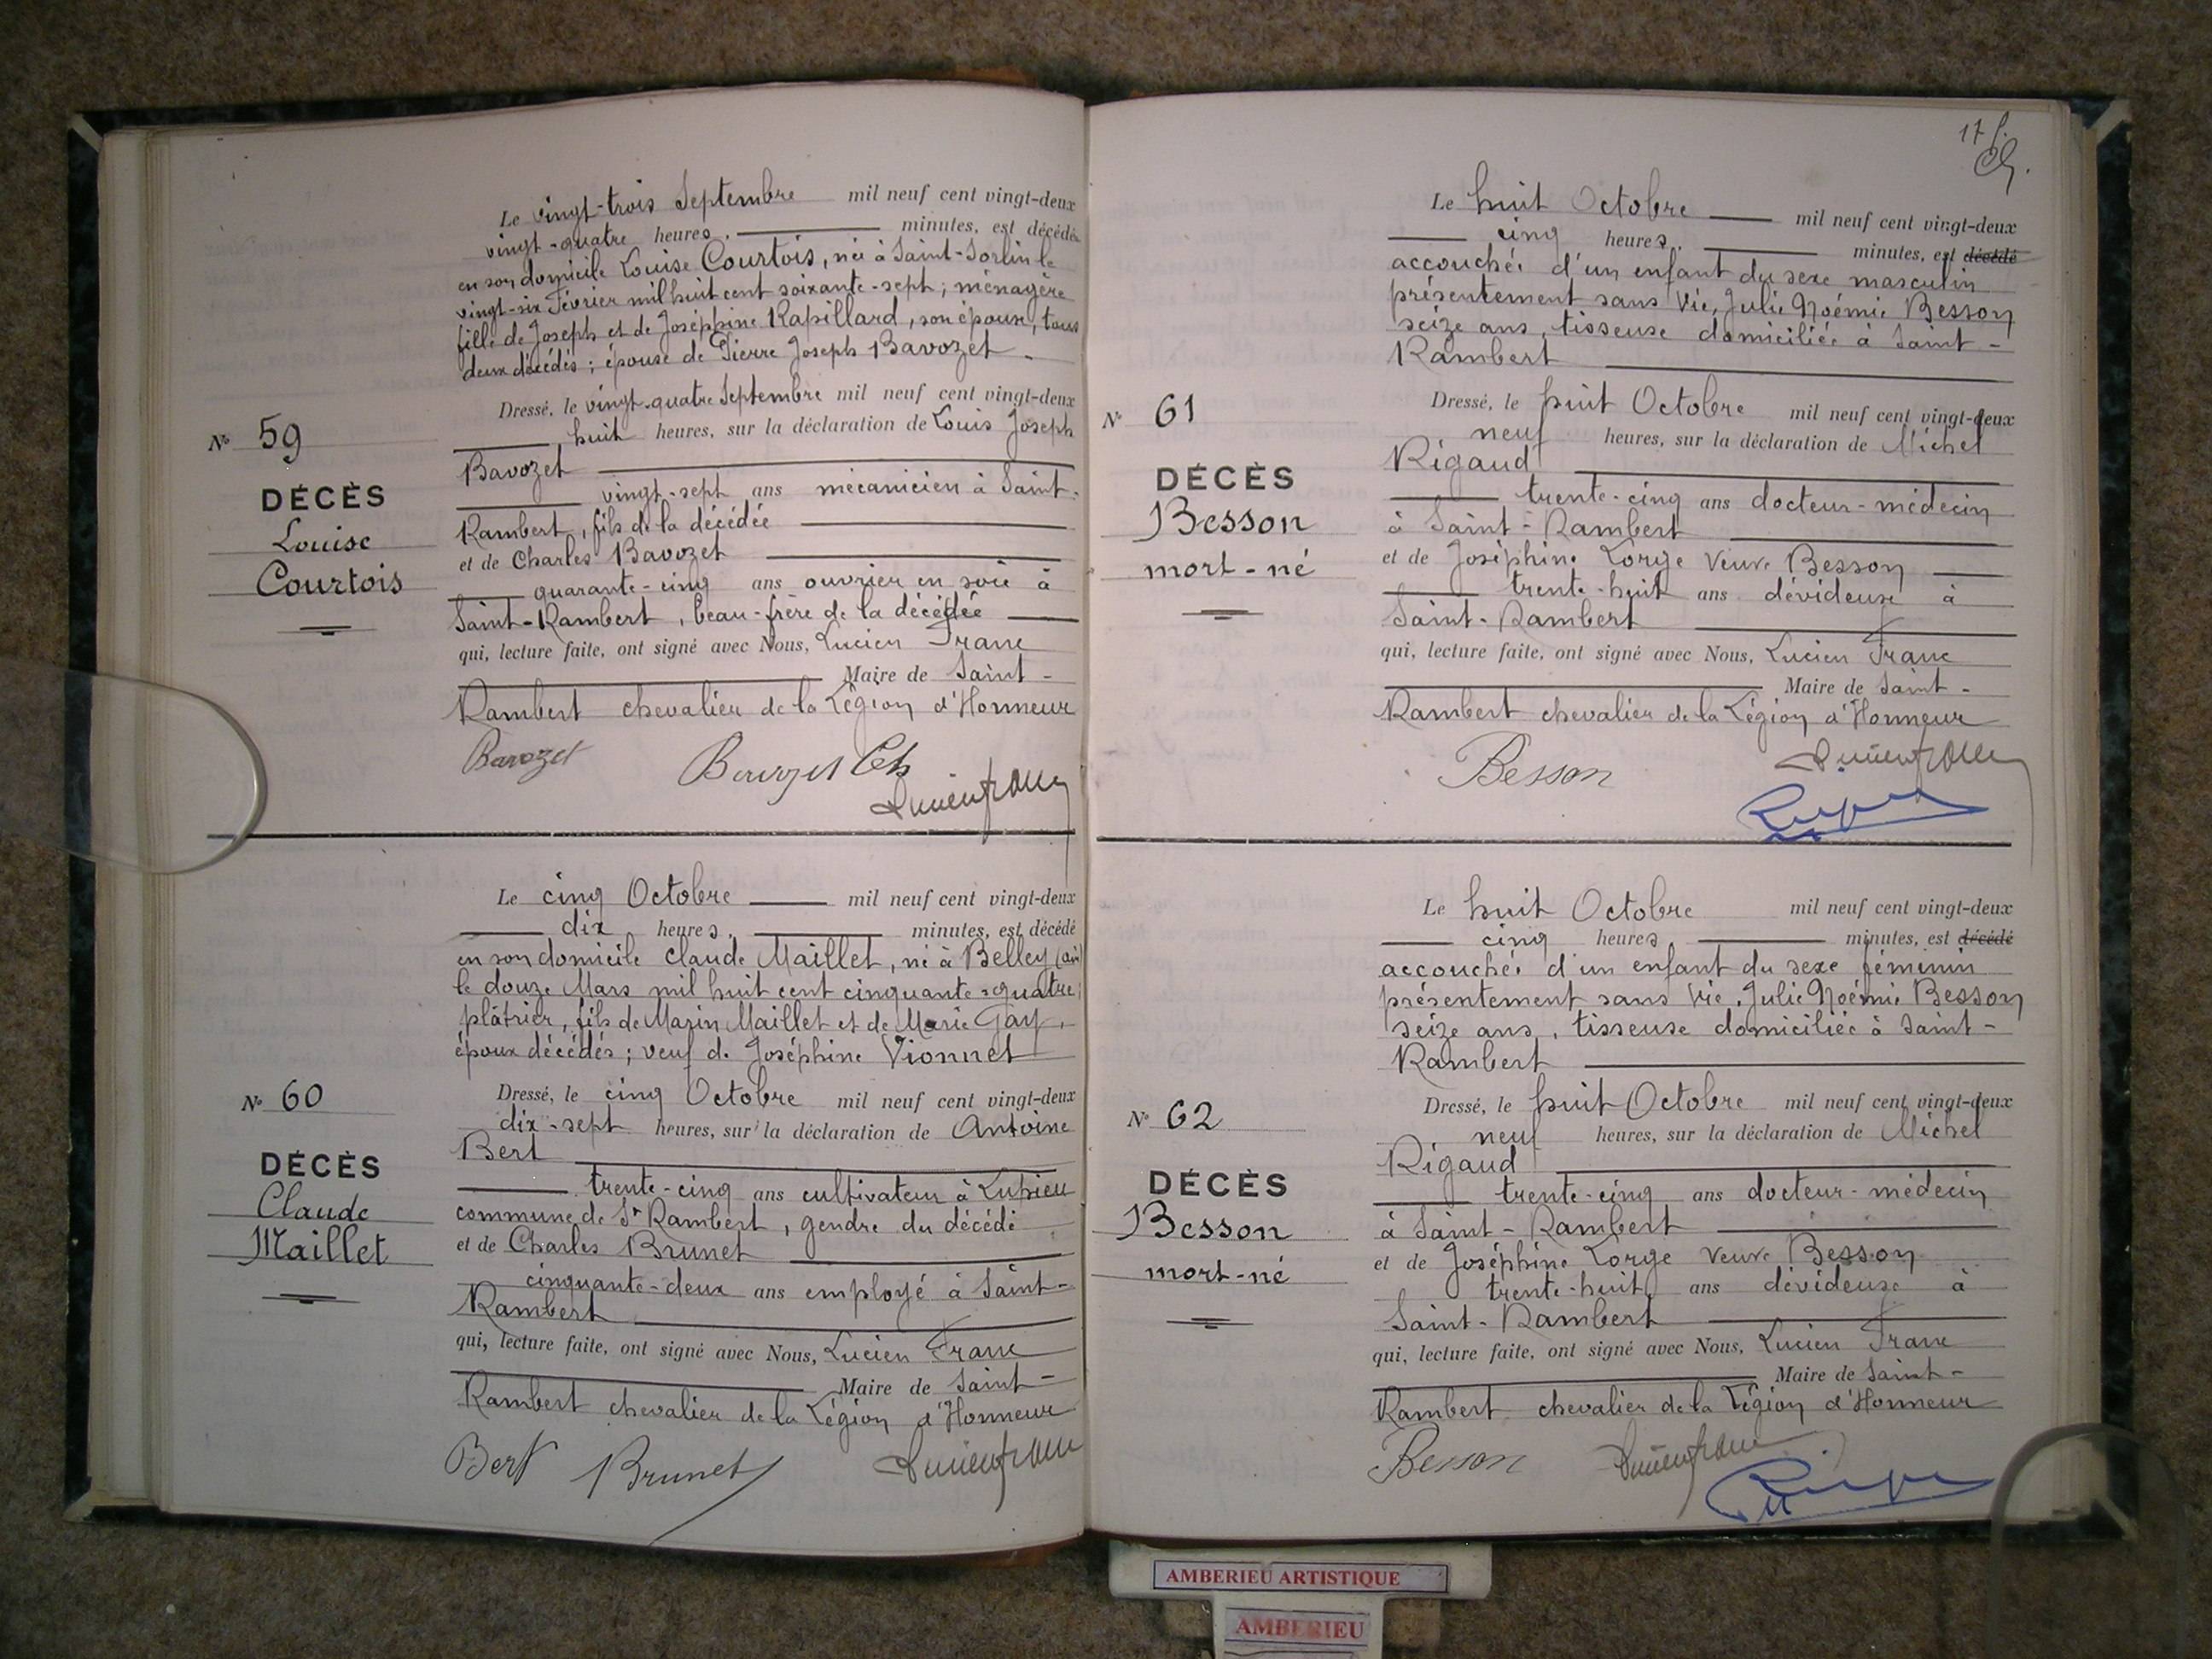 Le vingt-trois Septembre mil neuf cent vingt-deux
vingt-quatre heures, minutes, est décédée
en son domicile Louise Courtois, née à Saint-Sorlin le
vingt-six Février mil huit cent soixante-sept; ménagère
fille de Joseph et de Joséphine Rapillard, son épouse, tous
deux décédés; épouse de Pierre Joseph Bavozet.
Dressé, le vingt-quatre Septembre mil neuf cent vingt-deux
N° 59
, huit heures, sur la déclaration de Louis Joseph
Bavozet
DÉCÈS
vingt-sept ans mécanicien à Saint-
Louise
Rambert, fils de la décédée
et de Charles Bavozet
Courtois
quarante-cinq ans ouvrier en soie à
Saint-Rambert, beau-frère de la décédée
qui, lecture faite, ont signé avec Nous, Lucien Franc
Maire de Saint-
Rambert chevalier de la Légion d'Honneur
Bavozet Bavozet Ch
Lucien Franc
Le cinq Octobre mil neuf cent vingt-deux
dix heures, minutes, est décédé
en son domicile Claude Maillet, né à Belley (Ain)
le douze Mars mil huit cent cinquante-quatre;
plâtrier, fils de Marin Maillet et de Marie Gay,
époux décédés; veuf de Joséphine Vionnet
N° 60
Dressé, le cinq Octobre mil neuf cent vingt-deux
dix-sept heures, sur la déclaration de Antoine
Bert
DÉCÈS
trente-cinq ans cultivateur à Lupieu
Claude
commune de St Rambert, gendre du décédé
Maillet
et de Charles Brunet
cinquante-deux ans employé à Saint-
Rambert
qui, lecture faite, ont signé avec Nous, Lucien Franc
Maire de Saint-
Rambert chevalier de la Légion d'Honneur
Bert Brunet Lucien Franc
17
Le huit Octobre mil neuf cent vingt-deux
cinq heures, minutes, est décédé
accouchée d'un enfant du sexe masculin
présentement sans vie, Julie Noémie Besson
seize ans, tisseuse domiciliée à Saint-
Rambert
N° 61
Dressé, le huit Octobre mil neuf cent vingt-deux
neuf heures, sur la déclaration de Michel
Rigaud
DÉCÈS
trente-cinq ans docteur-médecin
Besson
à Saint-Rambert
mort-né
et de Joséphine Lorge Veuve Besson
trente-huit ans dévideuse à
Saint-Rambert
qui, lecture faite, ont signé avec Nous, Lucien Franc
Maire de Saint-
Rambert chevalier de la Légion d'Honneur
Besson Lucien Franc
Le huit Octobre mil neuf cent vingt-deux
cinq heures minutes, est décédé
accouchée d'un enfant du sexe féminin
présentement sans vie, Julie Noémie Besson
seize ans, tisseuse domiciliée à Saint-
Rambert
N° 62
Dressé, le huit Octobre mil neuf cent vingt-deux
neuf heures, sur la déclaration de Michel
Rigaud
DÉCÈS
trente-cinq ans docteur-médecin
Besson
à Saint-Rambert
mort-né
et de Joséphine Lorge Veuve Besson
trente-huit ans dévideuse à
Saint-Rambert
qui, lecture faite, ont signé avec Nous, Lucien Franc
Maire de Saint-
Rambert chevalier de la Légion d'Honneur
Besson Lucien Franc
AMBERIEU ARTISTIQUE
AMBERIEU